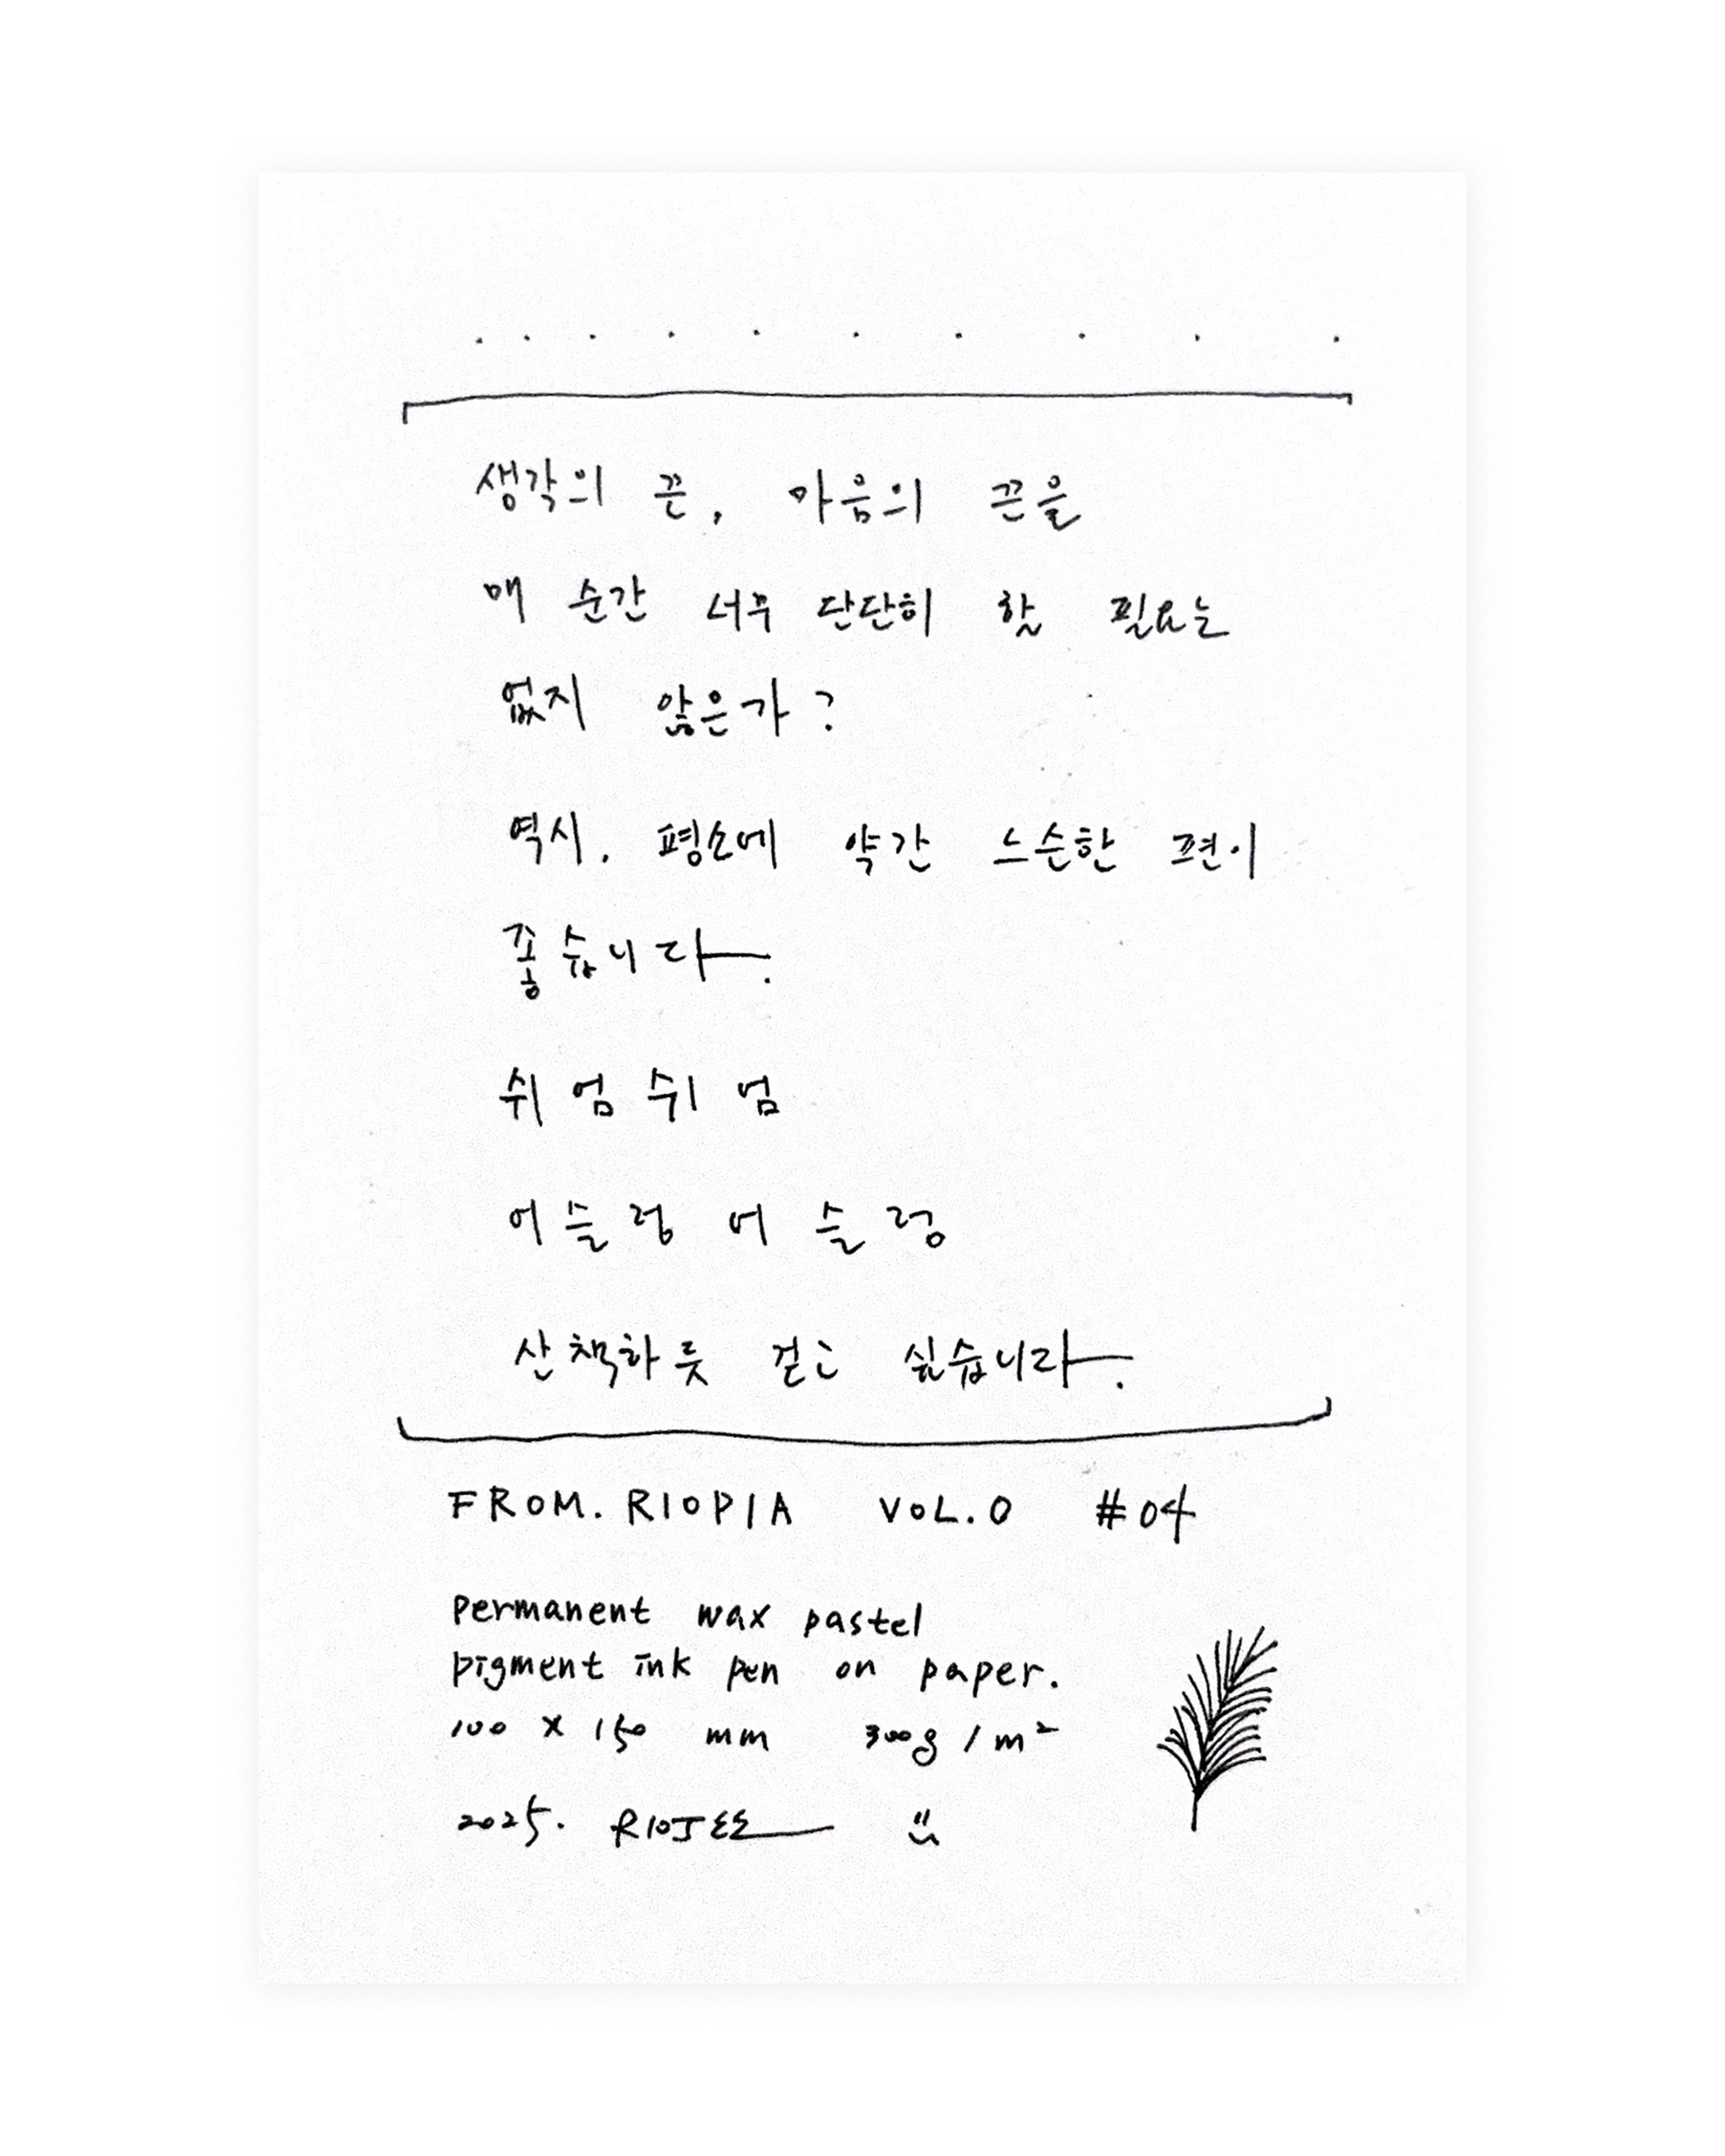 생각의 끈, 마음의 끈을
매 순간 너무 단단히 할 필요는
없지 않은가?
역시. 평소에 약간 느슨한 편이
좋습니다.
쉬엄쉬엄
어슬렁어슬렁
산책하듯 걷고 싶습니다.
FROM. RIOPIA VOL.0 #04
permanent wax pastel
pigment ink pen on paper.
100 x 150 mm 300g / m²
2025. RIOJEE